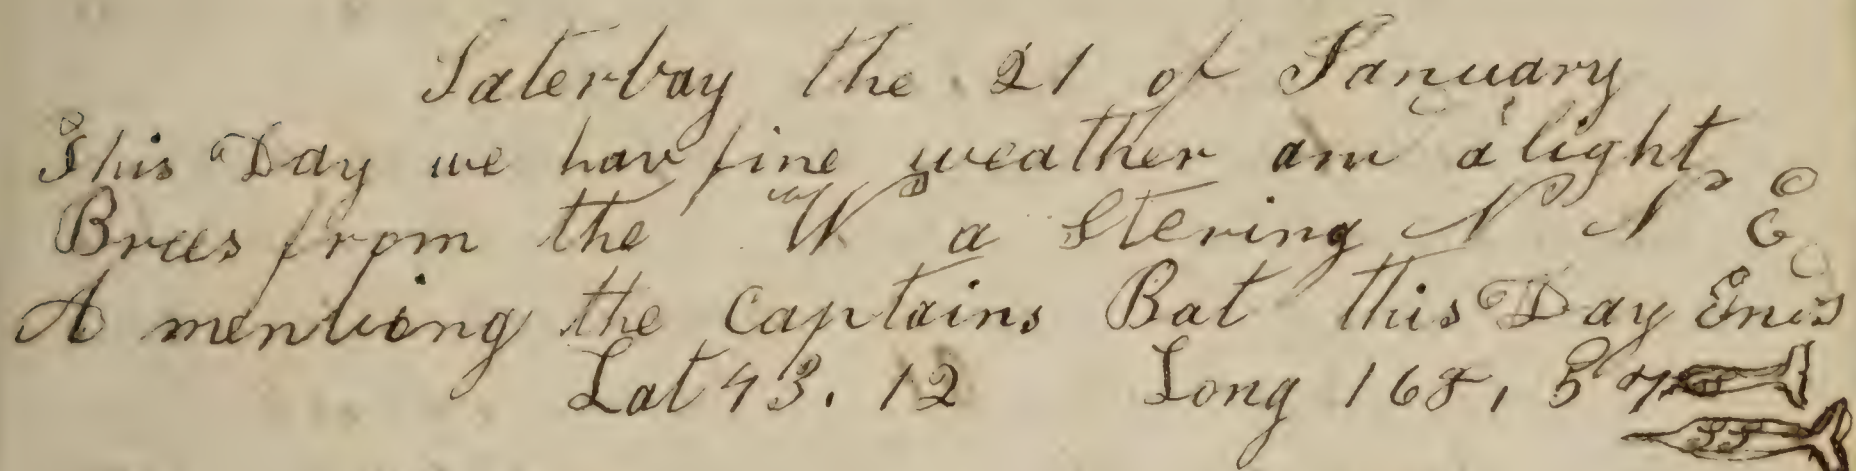 Saterday the 21 of January
This Day we hav fine weather am a light
Brees from the W a Stering N N E
A mentiong the Captains Bat this Day Ends
Lat 43. 12 Long 168, 57